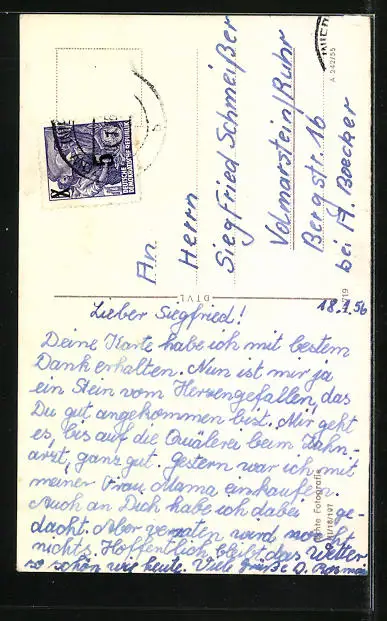 An
Herrn
Siegfried Schmeißer
Volmarstein/Ruhr
Bergstr. 16
bei A. Boecker
A 242/55
DEUTSCHE
DEMOKRATISCHE REPUBLIK
5
DTVL
18.1.56
Lieber Siegfried!
Deine Karte habe ich mit bestem
Dank erhalten. Nun ist mir ja
ein Stein vom Herzen gefallen, das
Du gut angekommen bist. Mir geht
es, bis auf die Quälerei beim Zahn-
arzt, ganz gut. Gestern war ich mit
meiner Frau Mama einkaufen.
Auch an Dich habe ich dabei ge-
dacht. Aber verraten wird noch
nichts. Hoffentlich bleibt das Wetter
so schön wie heute. Viele Grüße
Echte Fotografie